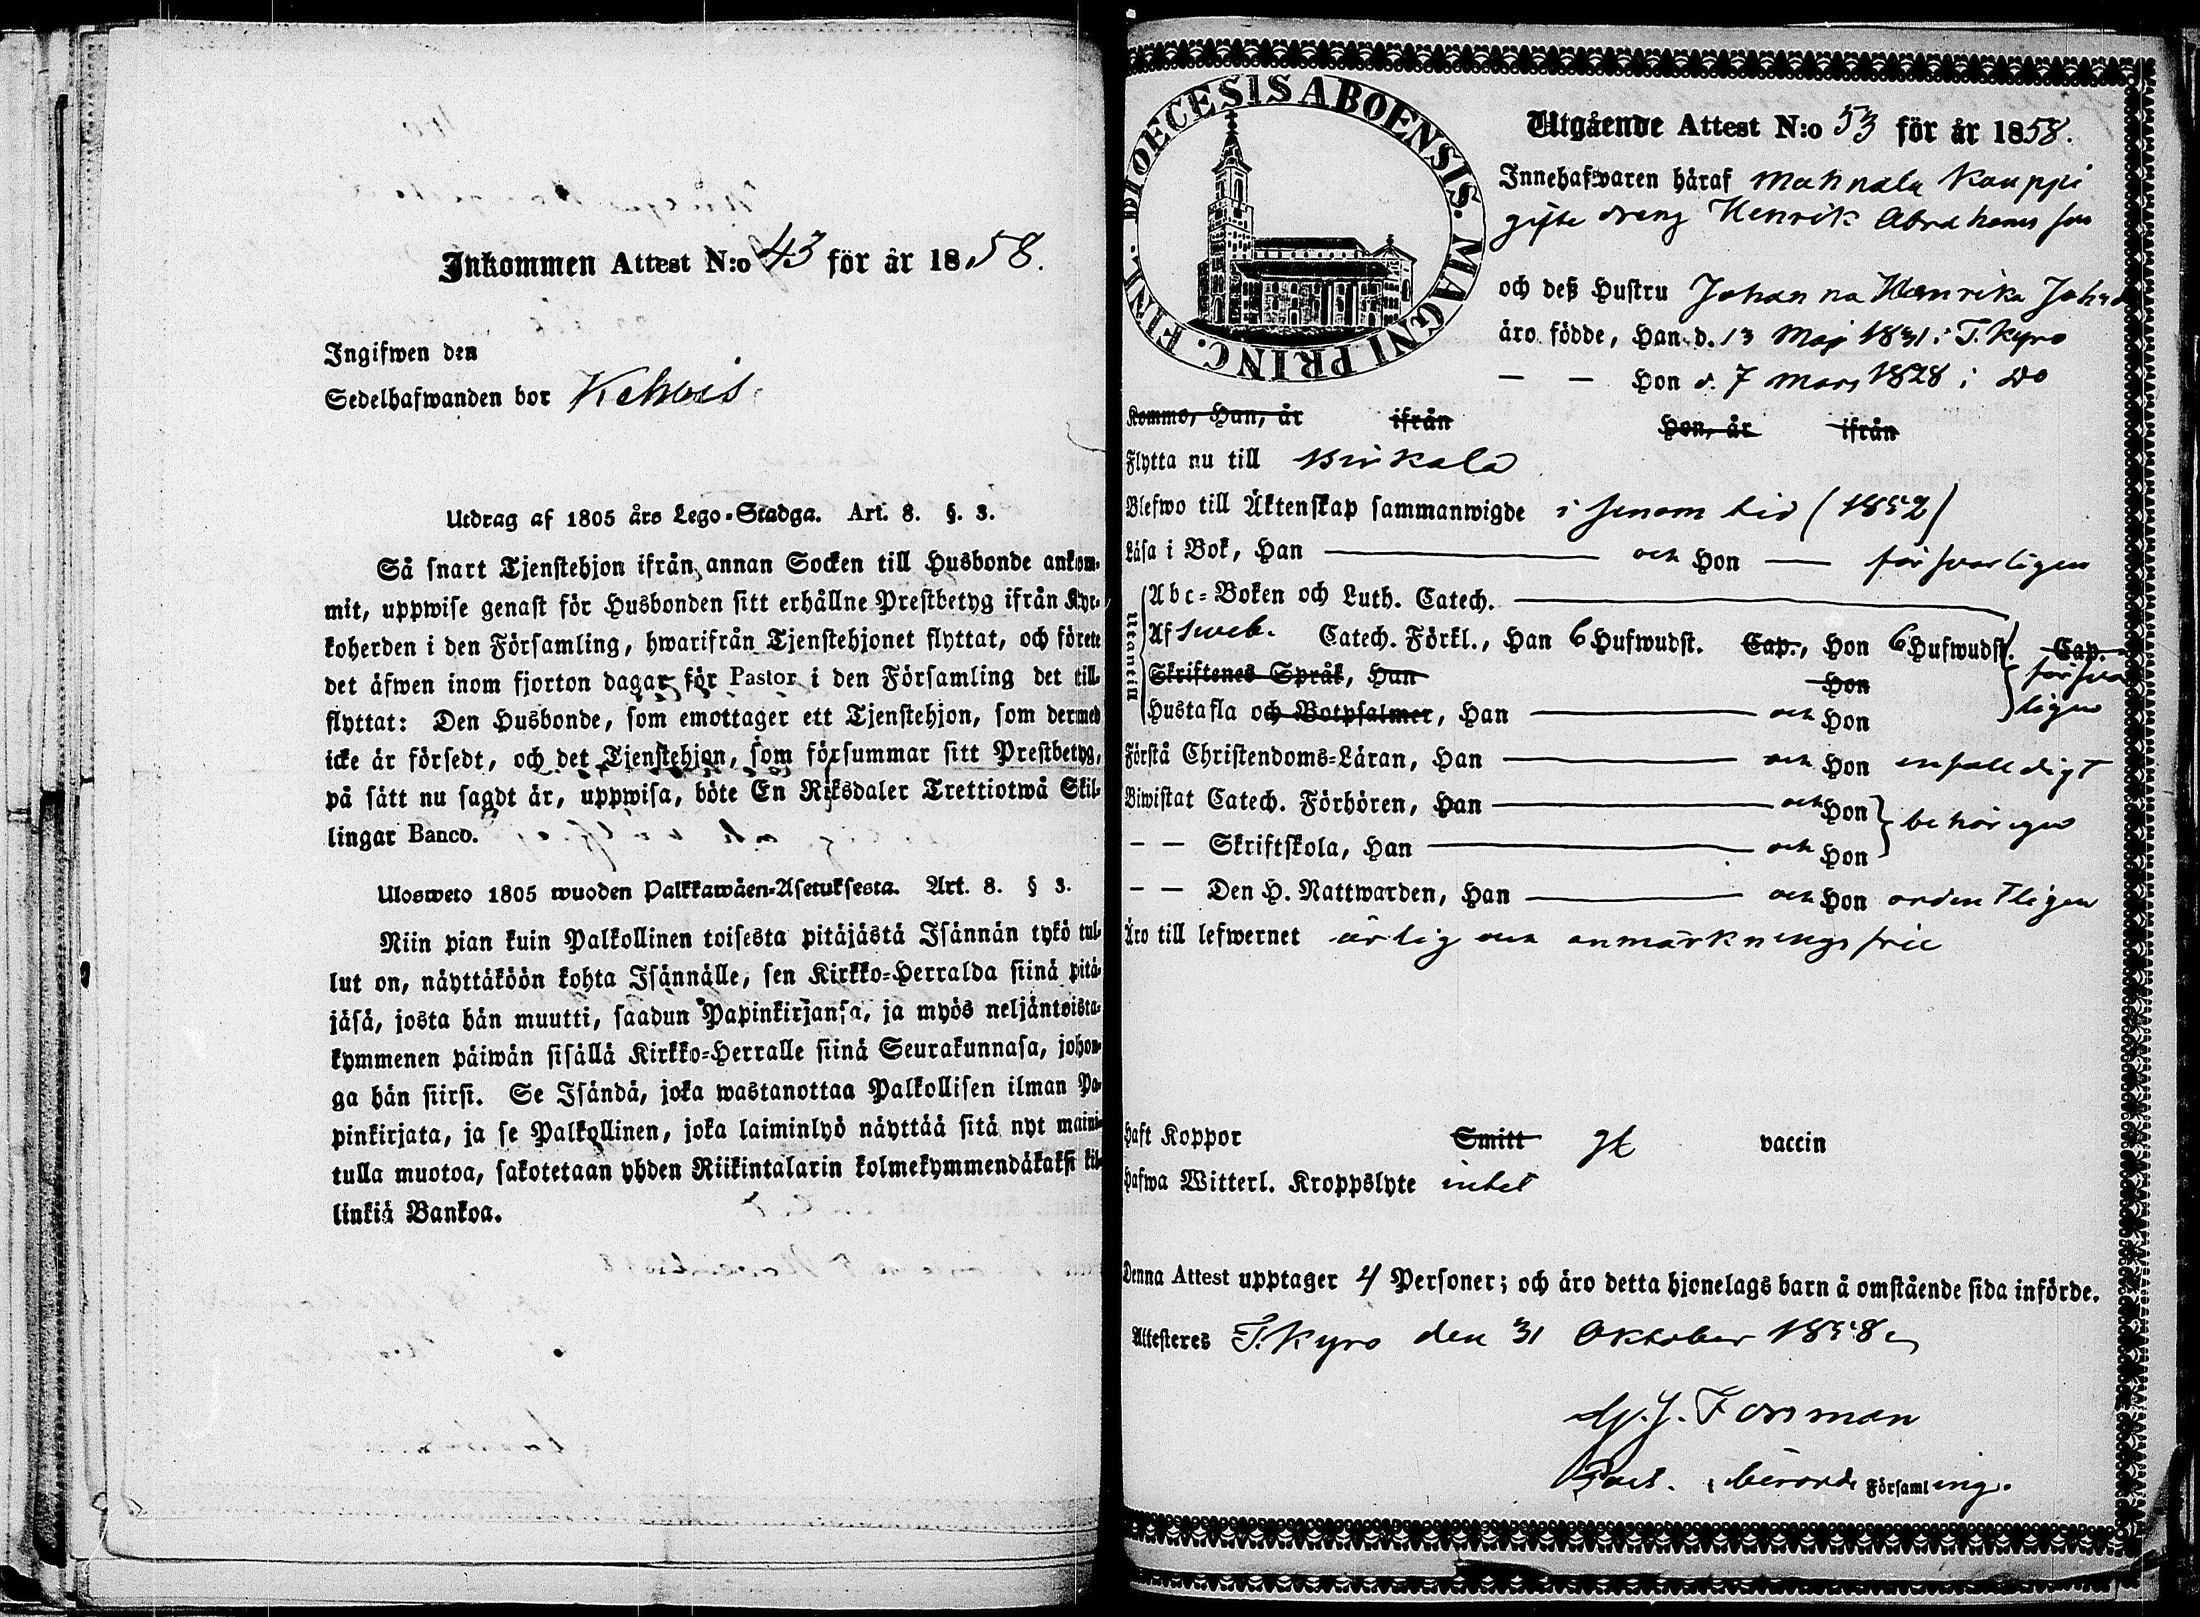 Inkommen Attest N:o 43 för år 1858.
Ingifwen den
Sedelhafwanden bor Kehois
Utdrag af 1805 års Lego-Stadga. Art. 8. §. 3.
Så snart Tjenstehjon ifrån annan Socken till Husbonde ankom-
mit, uppwise genast för Husbonden sitt erhållne Prestbetyg ifrån Kyr-
koherden i den Församling, hwarifrån Tjenstehjonet flyttat, och förete
det äfwen inom fjorton dagar för Pastor i den Församling det till-
flyttat: Den Husbonde, som emottager ett Tjenstehjon, som dermed
icke är försedt, och det Tjenstehjon, som försummar sitt Prestbetyg,
på sätt nu sagdt är, uppwisa, böte En Riksdaler Trettiotwå Skil-
lingar Banco.
Ulosweto 1805 wuoden Palkkawäen-Asetuksesta. Art. 8. § 3.
Niin pian kuin Palkollinen toisesta pitäjästä Isännän tykö tul-
lut on, näyttäköön kohta Isännälle, sen Kirkko-Herralda siinä pitä-
jäsä, josta hän muutti, saadun Papinkirjansa, ja myös neljäntoista-
kymmenen päiwän sisällä Kirkko-Herralle siinä Seurakunnasa, johon-
ga hän siirsi. Se Isändä, joka wastanottaa Palkollisen ilman Pa-
pinkirjata, ja se Palkollinen, joka laiminlyö näyttää sitä nyt maini-
tulla muotoa, sakotetaan yhden Riikintalarin kolmekymmendäkaksi kil-
linkiä Bankoa.
DIOECESIS ABOENSIS. MAGNI PRINC. FINL.
Utgående Attest N:o 53 för år 1858.
Innehafwaren häraf Mahnala Kauppi
gifte dreng Henrik Abrahamsson
och deß Hustru Johanna Henrika Johan
äro födde, Han d. 13 Maj 1831 i T.Kyro
— — Hon d. 7 Mars 1828 i Do
Kommo, Han, år ifrån Hon, år ifrån
Flytta nu till Birkala
Blefwo till Äktenskap sammanwigde i senom tid (1852)
Läsa i Bok, Han — och Hon — försvarligen
Utantill
Abc-Boken och Luth. Catech. —
Af Sveb. Catech. Förkl., Han 6 Hufwudst. Cap., Hon 6 Hufwudst. Cap.
Skriftenes Språk, Han Hon försvar
Hustafla och Botpsalmer, Han — och Hon ligen
Förstå Christendoms-Läran, Han — och Hon enfalldigt
Biwistat Catech. Förhören, Han — och Hon behörigen
— — Skriftskola, Han — och Hon
— — Den H. Nattwarden, Han — och Hon ordentligen
Äro till lefwernet ärlig och anmärkningsfrie
Haft Koppor Smitt gt vaccin
Hafwa Witterl. Kroppslyte intet
Denna Attest upptager 4 Personer; och äro detta hjonelags barn å omstående sida införde.
Attesteres T.Kyro den 31 Oktober 1858
J. Forsman
Past. i berörde Församling.